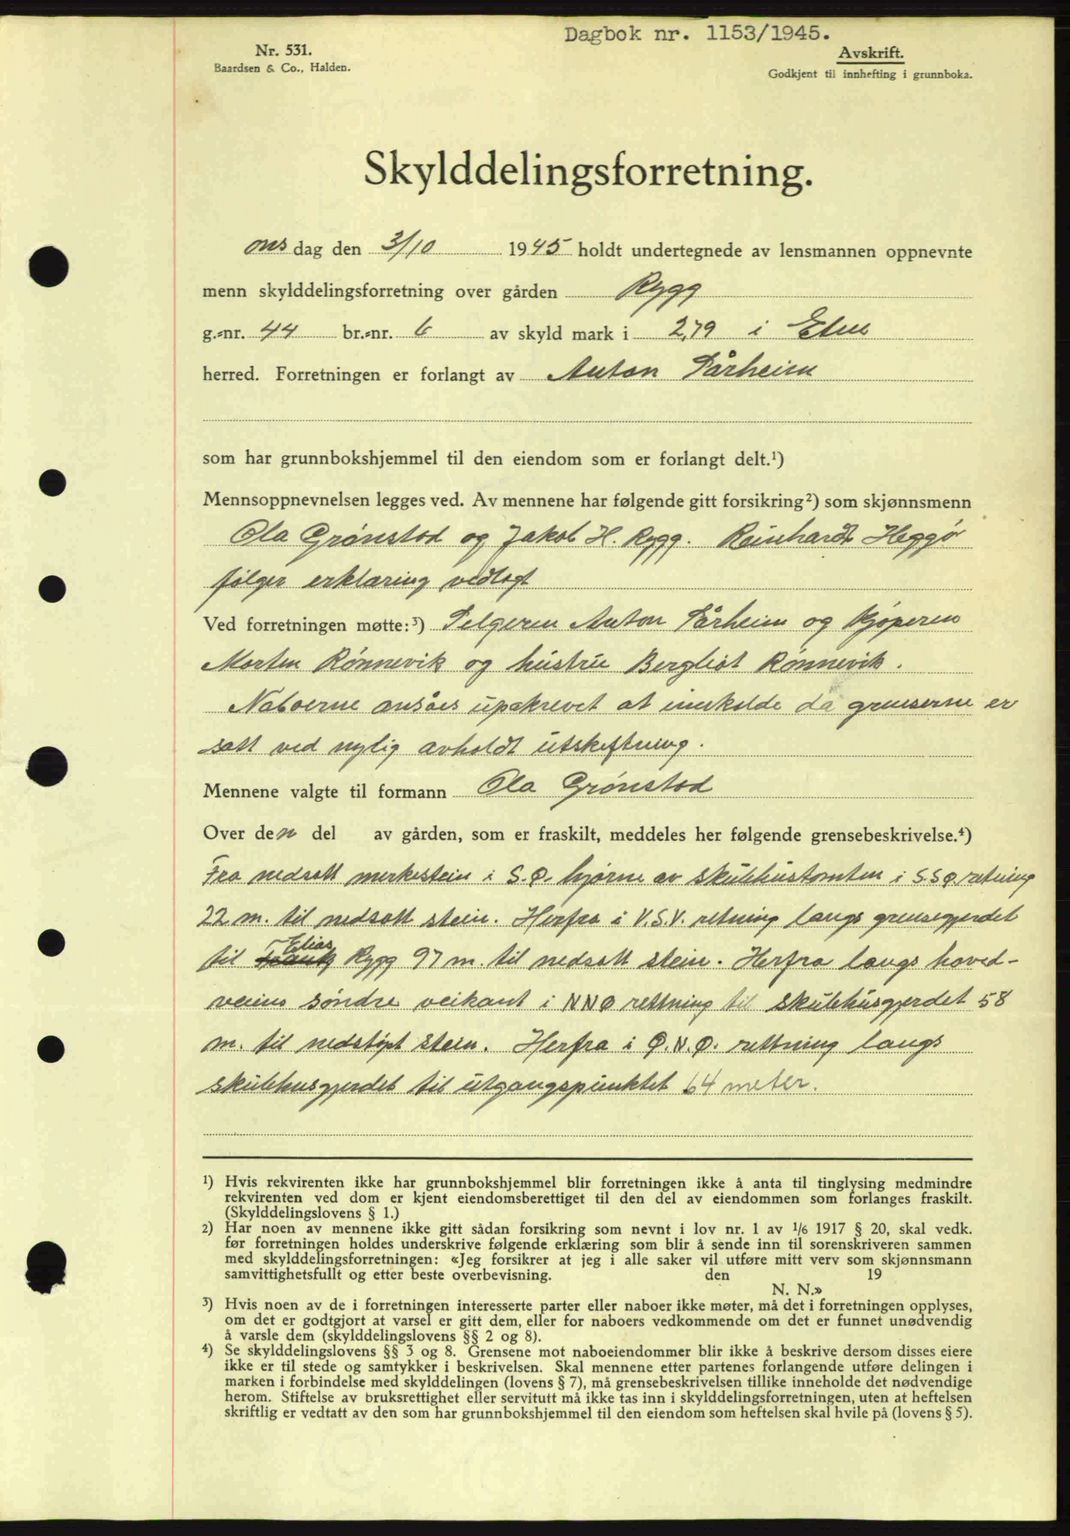 Dagbok nr. 1153/1945.
Nr. 531.
Baardsen & Co., Halden.
Avskrift.
Godkjent til innhefting i grunnboka.
Skylddelingsforretning.
onsdag den 3/10 1945 holdt undertegnede av lensmannen oppnevnte
menn skylddelingsforretning over gården Rygg
g.-nr. 44 br.-nr. 6 av skyld mark i 2,79 i Eina
herred. Forretningen er forlangt av Anton Fårheim
som har grunnbokshjemmel til den eiendom som er forlangt delt.¹)
Mennsoppnevnelsen legges ved. Av mennene har følgende gitt forsikring²) som skjønnsmenn
Ola Grønstad og Jakob H. Rygg. Reinhardt Heggø
følger erklæring vedlagt
Ved forretningen møtte:³) Selgeren Anton Fårheim og kjøperen
Morten Rønnevik og hustru Bergliot Rønnevik.
Naboerne ansåes upåkrevet at innkalde da grenserne er
satt ved nylig avholdt utskiftning.
Mennene valgte til formann Ola Grønstad
Over den del av gården, som er fraskilt, meddeles her følgende grensebeskrivelse.⁴)
Fra nedsatt merkestein i S.Ø. hjørne av skulehustomten i S.S.Ø retning
22 m. til nedsatt stein. Herfra i V.S.V. retning langs grensegjerdet
til Elias Rygg 97 m. til nedsatt stein. Herfra langs hoved-
veiens søndre veikant i NNØ rettning til skulehusgjerdet 58
m. til nedstøpt stein. Herfra i Ø.N.Ø. rettning langs
skulehusgjerdet til utgangspunktet 64 meter.
¹) Hvis rekvirenten ikke har grunnbokshjemmel blir forretningen ikke å anta til tinglysing medmindre
rekvirenten ved dom er kjent eiendomsberettiget til den del av eiendommen som forlanges fraskilt.
(Skylddelingslovens § 1.)
²) Har noen av mennene ikke gitt sådan forsikring som nevnt i lov nr. 1 av ¹/6 1917 § 20, skal vedk.
før forretningen holdes underskrive følgende erklæring som blir å sende inn til sorenskriveren sammen
med skylddelingsforretningen: «Jeg forsikrer at jeg i alle saker vil utføre mitt verv som skjønnsmann
samvittighetsfullt og etter beste overbevisning. den 19
N. N.»
³) Hvis noen av de i forretningen interesserte parter eller naboer ikke møter, må det i forretningen opplyses,
om det er godtgjort at varsel er gitt dem, eller for naboers vedkommende om det er funnet unødvendig
å varsle dem (skylddelingslovens §§ 2 og 8).
⁴) Se skylddelingslovens §§ 3 og 8. Grensene mot naboeiendommer blir ikke å beskrive dersom disses eiere
ikke er til stede og samtykker i beskrivelsen. Skal mennene etter partenes forlangende utføre delingen i
marken i forbindelse med skylddelingen (lovens § 7), må grensebeskrivelsen tillike inneholde det nødvendige
herom. Stiftelse av bruksrettighet eller servitutt må ikke tas inn i skylddelingsforretningen, uten at heftelsen
skriftlig er vedtatt av den som har grunnbokshjemmel til den eiendom som heftelsen skal hvile på (lovens § 5).